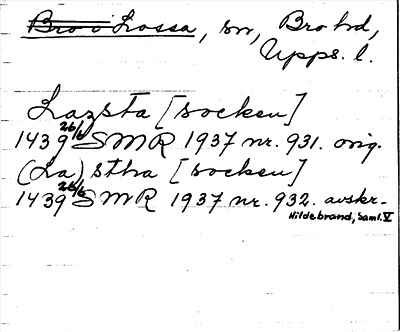 Bro o Lossa, sn, Bro hd,
Upps. l.
Lazsta [socken]
1439 26/6 SMR 1937 nr. 931. orig.
(La)stha [socken]
1439 26/6 SMR 1937 nr. 932. avskr.-
Hildebrand, Saml. V